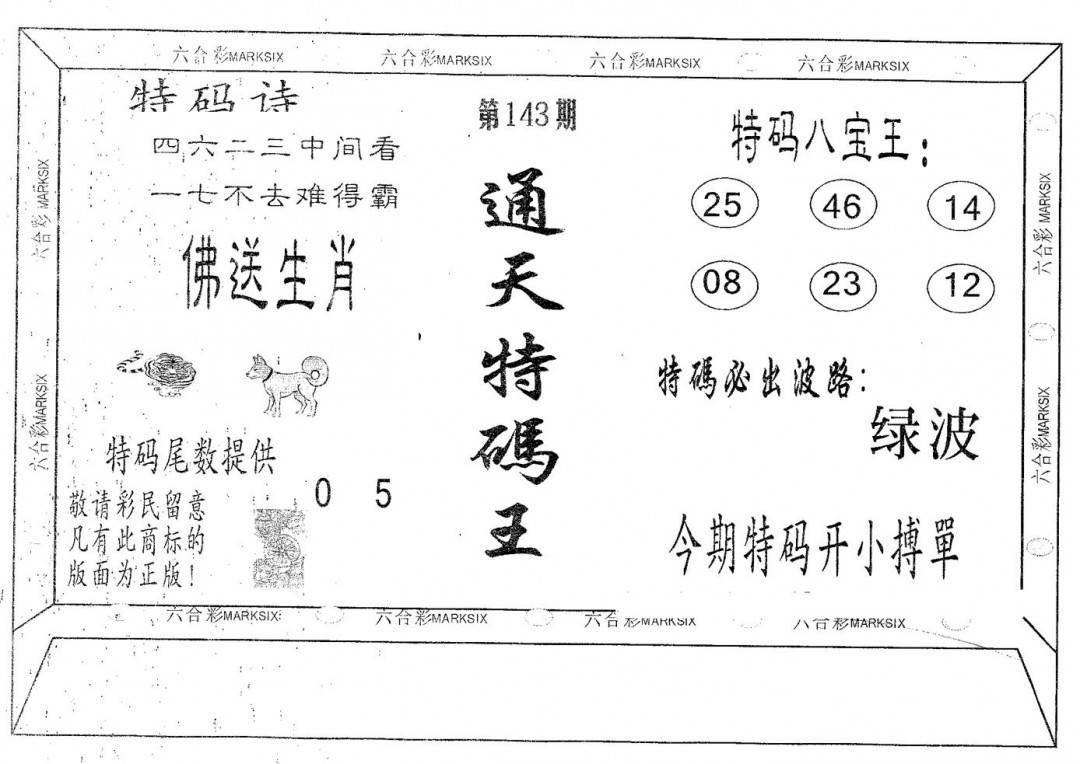 六合彩MARKSIX 六合彩MARKSIX 六合彩MARKSIX 六合彩MARKSIX
特码诗
四六二三中间看
一七不去难得霸
佛送生肖
特码尾数提供
0 5
敬请彩民留意
凡有此商标的
版面为正版！
第143期
通天特碼王
特码八宝王：
25 46 14
08 23 12
特碼必出波路：
绿波
今期特码开小搏單
六合彩MARKSIX
六合彩MARKSIX
六合彩MARKSIX
六合彩MARKSIX
六合彩MARKSIX 六合彩MARKSIX 六合彩MARKSIX 六合彩MARKSIX